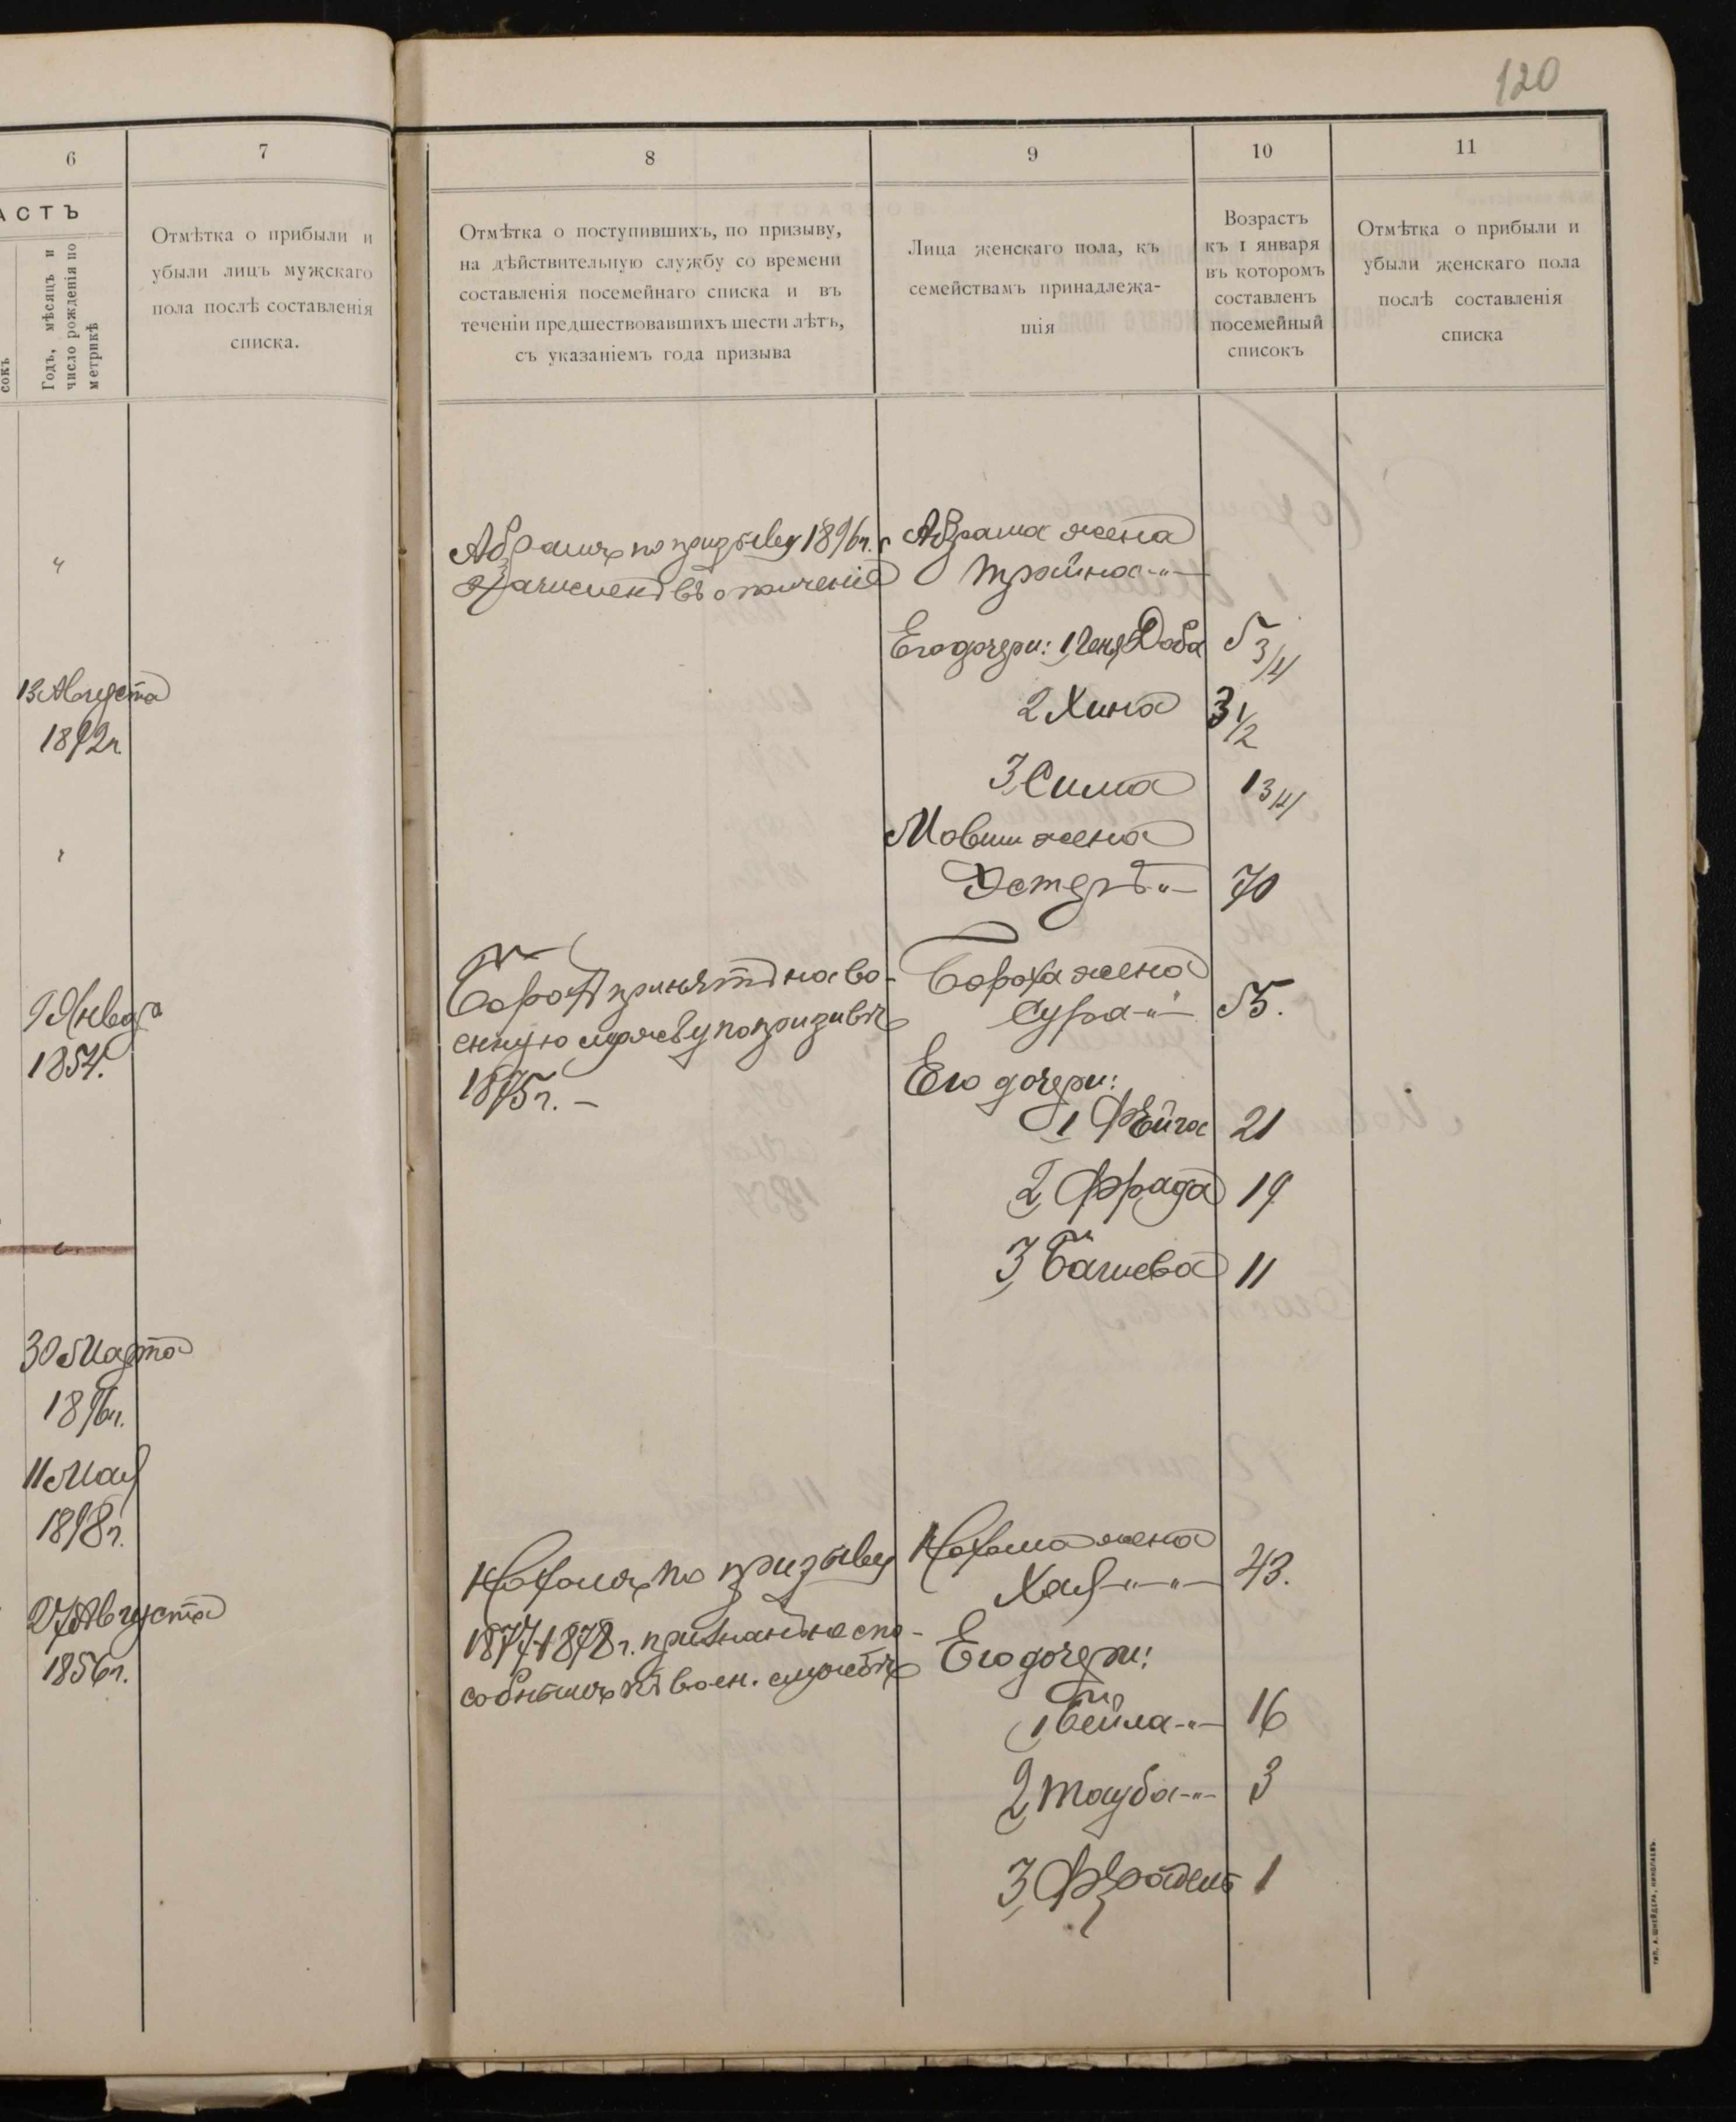 120
6
7
8
9
10
11
АСТЪ
сокъ
Годъ, мѣсяцъ и
число рожденія по
метрикѣ
Отмѣтка о прибыли и
убыли лицъ мужскаго
пола послѣ составленія
списка.
Отмѣтка о поступившихъ, по призыву,
на дѣйствительную службу со времени
составленія посемейнаго списка и въ
теченіи предшествовавшихъ шести лѣтъ,
съ указаніемъ года призыва
Лица женскаго пола, къ
семействамъ принадлежа-
щія
Возрастъ
къ 1 января
въ которомъ
составленъ
посемейный
списокъ
Отмѣтка о прибыли и
убыли женскаго пола
послѣ составленія
списка
13 Августа
1892г
9 Января
1854.
30 Марта
1896г.
11 Мая
1898г.
27 Августа
1856г.
Абрамъ по призыву 1896г.
зачисленъ въ ополченіе
Борохъ принятъ на во-
енную службу по призывѣ
1875г. –
Нахомъ по призыву
1877-1878г. признанъ неспо-
собнымъ къ воен. службѣ
Абрама жена
Трайна -"-
Его дочери: 1 Геня Доба 5 3/4
2 Хина 3 1/2
3 Сима 1 3/4
Мовши жена
Эстеръ -"- 70
Бороха жена
Сура -"- 55.
Его дочери:
1 Фейга 21
2 Фрада 19
3 Башева 11
Нахома жена
Хая -"-"- 43.
Его дочери:
1 Бейла -"- 16
2 Тауба -"- 3
3 Фрейдель 1
тип. А. Шнейдера, Николаевъ.